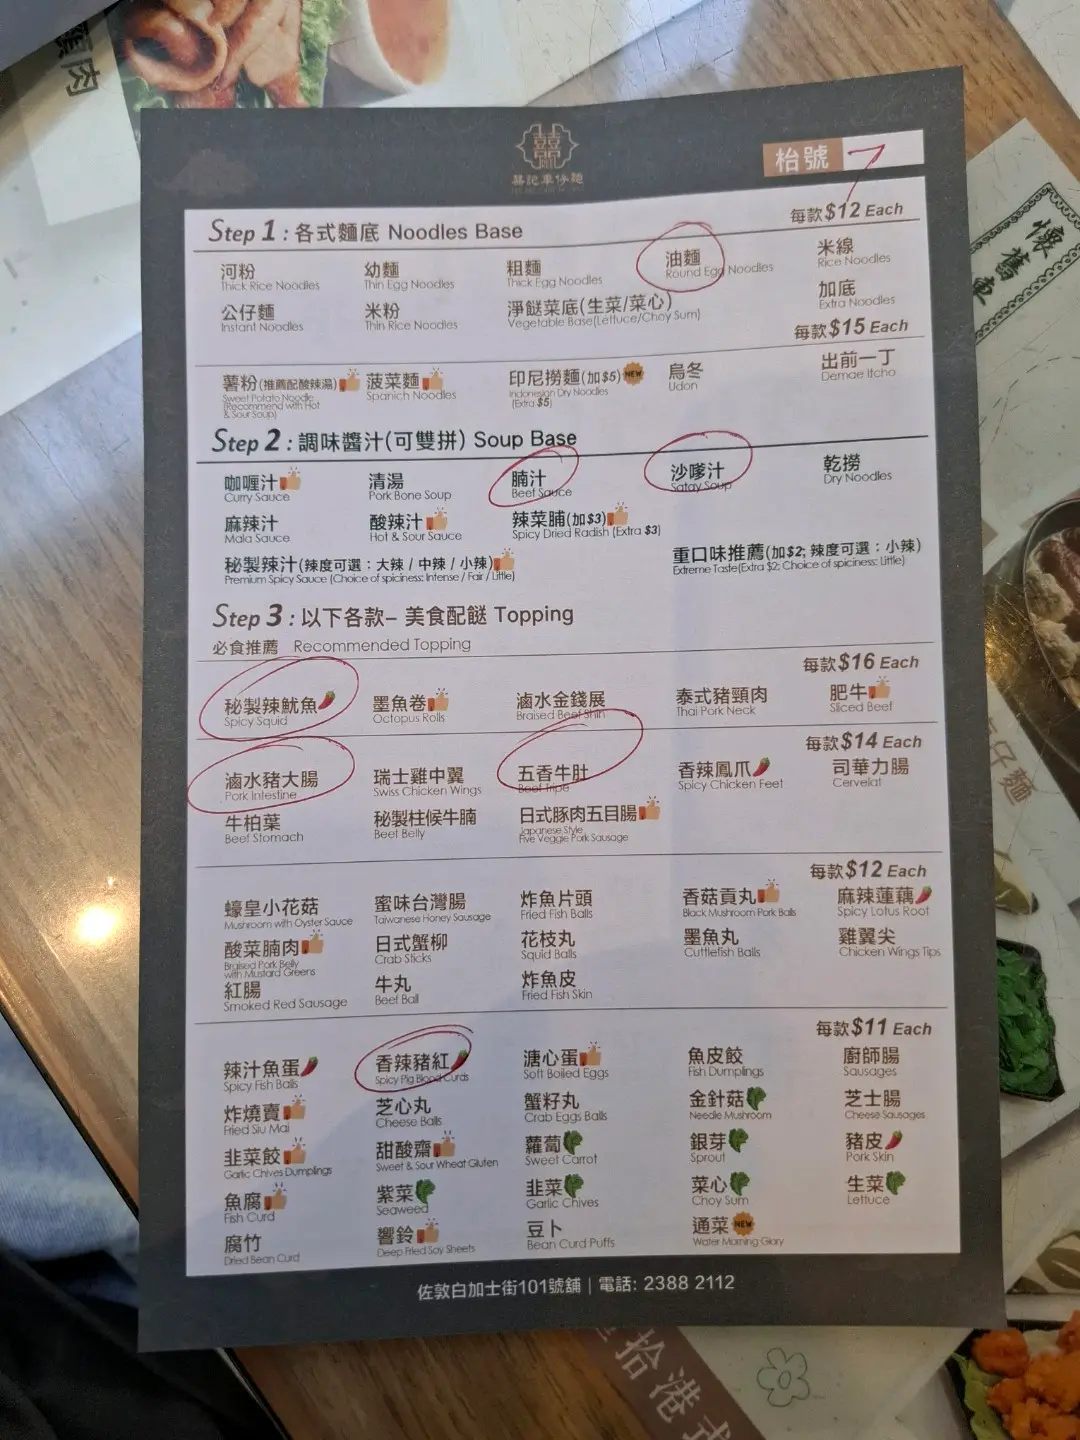 囍記車仔麵
枱號 7
Step 1 : 各式麵底 Noodles Base 每款$12 Each
河粉 幼麵 粗麵 油麵 米線
Thick Rice Noodles Thin Egg Noodles Thick Egg Noodles Round Egg Noodles Rice Noodles
公仔麵 米粉 淨餸菜底(生菜/菜心) 加底
Instant Noodles Thin Rice Noodles Vegetable Base(Lettuce/Choy Sum) Extra Noodles
每款$15 Each
薯粉(推薦配酸辣湯) 菠菜麵 印尼撈麵(加$5) NEW 烏冬 出前一丁
Sweet Potato Noodle Spanich Noodles Indonesian Dry Noodles Udon Demae Itcho
(Recommend with Hot (Extra $5)
& Sour Soup)
Step 2 : 調味醬汁(可雙拼) Soup Base
咖喱汁 清湯 腩汁 沙嗲汁 乾撈
Curry Sauce Pork Bone Soup Beef Sauce Satay Soup Dry Noodles
麻辣汁 酸辣汁 辣菜脯(加$3)
Mala Sauce Hot & Sour Sauce Spicy Dried Radish (Extra $3)
秘製辣汁(辣度可選：大辣 / 中辣 / 小辣) 重口味推薦(加$2; 辣度可選：小辣)
Premium Spicy Sauce (Choice of spiciness: Intense / Fair / Little) Extreme Taste(Extra $2; Choice of spiciness: Little)
Step 3 : 以下各款– 美食配餸 Topping
必食推薦 Recommended Topping
每款$16 Each
秘製辣魷魚 墨魚卷 滷水金錢展 泰式豬頸肉 肥牛
Spicy Squid Octopus Rolls Braised Beef Shin Thai Pork Neck Sliced Beef
每款$14 Each
滷水豬大腸 瑞士雞中翼 五香牛肚 香辣鳳爪 司華力腸
Pork Intestine Swiss Chicken Wings Beef Tripe Spicy Chicken Feet Cervelat
牛柏葉 秘製柱候牛腩 日式豚肉五目腸
Beef Stomach Beef Belly Japanese Style
Five Veggie Pork Sausage
每款$12 Each
蠔皇小花菇 蜜味台灣腸 炸魚片頭 香菇貢丸 麻辣蓮藕
Mushroom with Oyster Sauce Taiwanese Honey Sausage Fried Fish Balls Black Mushroom Pork Balls Spicy Lotus Root
酸菜腩肉 日式蟹柳 花枝丸 墨魚丸 雞翼尖
Braised Pork Belly Crab Sticks Squid Balls Cuttlefish Balls Chicken Wings Tips
with Mustard Greens
紅腸 牛丸 炸魚皮
Smoked Red Sausage Beef Ball Fried Fish Skin
每款$11 Each
辣汁魚蛋 香辣豬紅 溏心蛋 魚皮餃 廚師腸
Spicy Fish Balls Spicy Pig Blood Curds Soft Boiled Eggs Fish Dumplings Sausages
炸燒賣 芝心丸 蟹籽丸 金針菇 芝士腸
Fried Siu Mai Cheese Balls Crab Eggs Balls Needle Mushroom Cheese Sausages
韭菜餃 甜酸齋 蘿蔔 銀芽 豬皮
Garlic Chives Dumplings Sweet & Sour Wheat Gluten Sweet Carrot Sprout Pork Skin
魚腐 紫菜 韭菜 菜心 生菜
Fish Curd Seaweed Garlic Chives Choy Sum Lettuce
腐竹 響鈴 豆卜 通菜 NEW
Dried Bean Curd Deep Fried Soy Sheets Bean Curd Puffs Water Morning Glory
佐敦白加士街101號舖 | 電話: 2388 2112
懷舊車
仔麵
拾港式